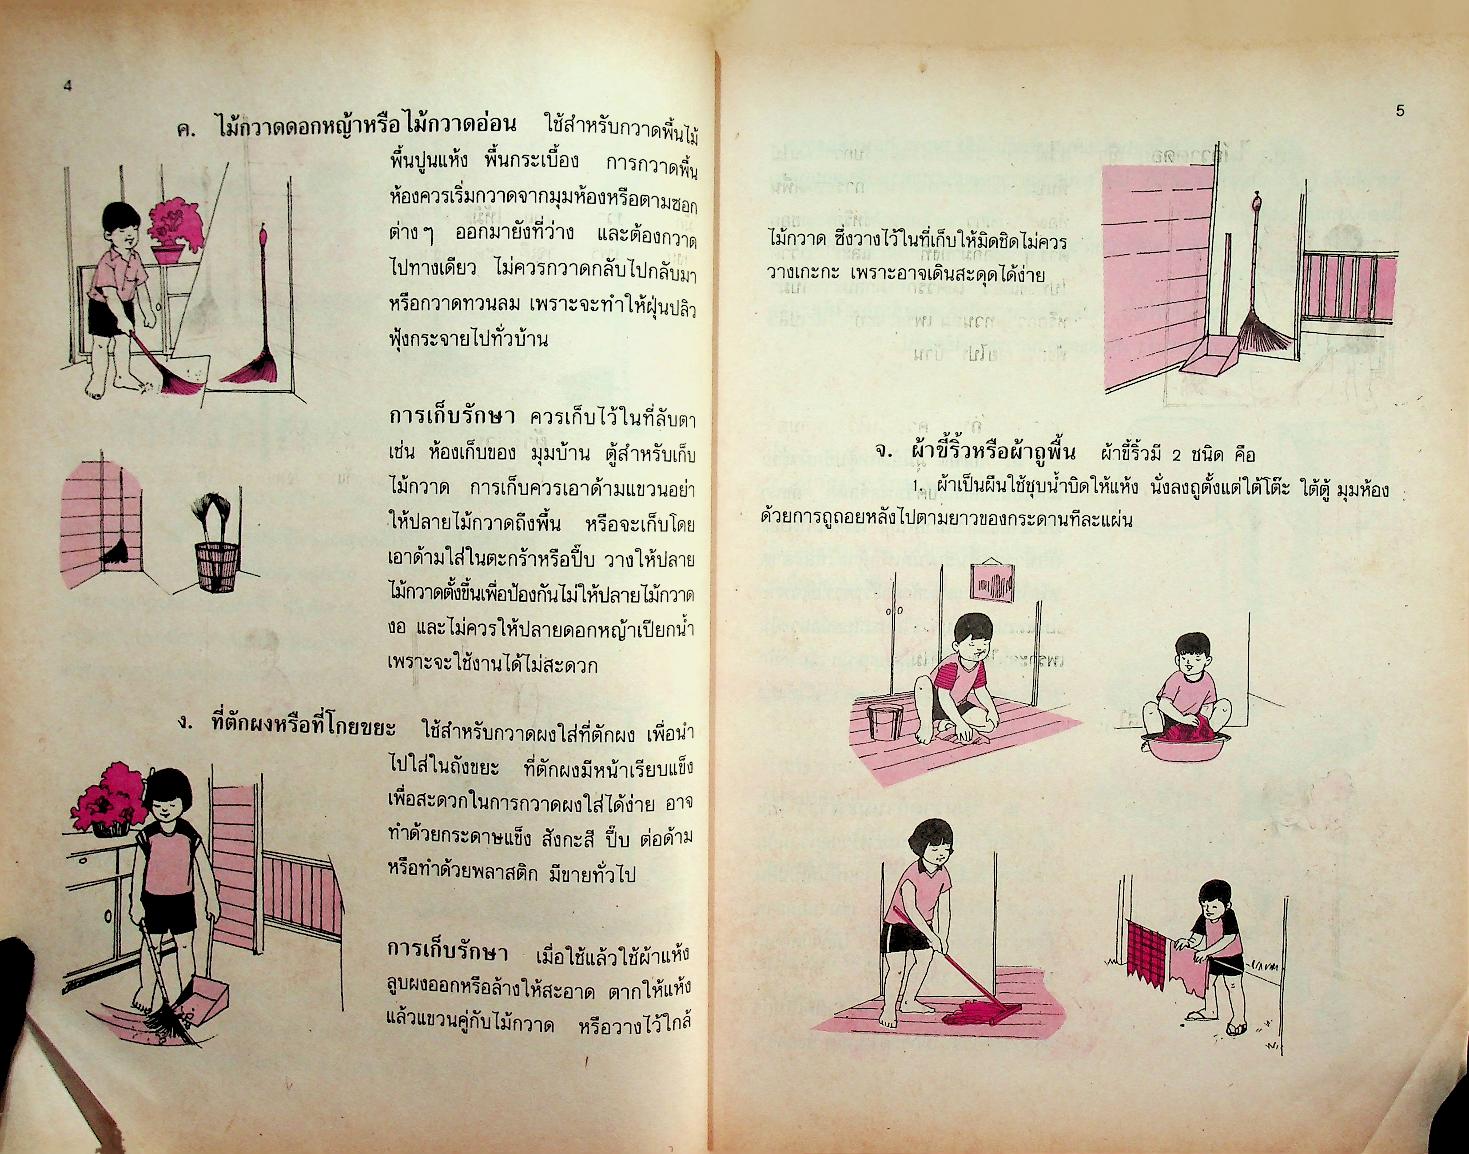 4
ค. ไม้กวาดดอกหญ้าหรือไม้กวาดอ่อน ใช้สำหรับกวาดพื้นไม้
พื้นปูนแห้ง พื้นกระเบื้อง การกวาดพื้น
ห้องควรเริ่มกวาดจากมุมห้องหรือตามซอก
ต่างๆ ออกมายังที่ว่าง และต้องกวาด
ไปทางเดียว ไม่ควรกวาดกลับไปกลับมา
หรือกวาดทวนลม เพราะจะทำให้ฝุ่นปลิว
ฟุ้งกระจายไปทั่วบ้าน
การเก็บรักษา ควรเก็บไว้ในที่ลับตา
เช่น ห้องเก็บของ มุมบ้าน ตู้สำหรับเก็บ
ไม้กวาด การเก็บควรเอาด้ามแขวนอย่า
ให้ปลายไม้กวาดถึงพื้น หรือจะเก็บโดย
เอาด้ามใส่ในตะกร้าหรือปี๊บ วางให้ปลาย
ไม้กวาดตั้งขึ้นเพื่อป้องกันไม่ให้ปลายไม้กวาด
งอ และไม่ควรให้ปลายดอกหญ้าเปียกน้ำ
เพราะจะใช้งานได้ไม่สะดวก
ง. ที่ตักผงหรือที่โกยขยะ ใช้สำหรับกวาดผงใส่ที่ตักผง เพื่อนำ
ไปใส่ในถังขยะ ที่ตักผงมีหน้าเรียบแข็ง
เพื่อสะดวกในการกวาดผงใส่ได้ง่าย อาจ
ทำด้วยกระดาษแข็ง สังกะสี ปี๊บ ต่อด้าม
หรือทำด้วยพลาสติก มีขายทั่วไป
การเก็บรักษา เมื่อใช้แล้วใช้ผ้าแห้ง
ลูบผงออกหรือล้างให้สะอาด ตากให้แห้ง
แล้วแขวนคู่กับไม้กวาด หรือวางไว้ใกล้
5
ไม้กวาด ซึ่งวางไว้ในที่เก็บให้มิดชิดไม่ควร
วางเกะกะ เพราะอาจเดินสะดุดได้ง่าย
จ. ผ้าขี้ริ้วหรือผ้าถูพื้น ผ้าขี้ริ้วมี 2 ชนิด คือ
1. ผ้าเป็นผืนใช้ชุบน้ำบิดให้แห้ง นั่งลงถูตั้งแต่ใต้โต๊ะ ใต้ตู้ มุมห้อง
ด้วยการถูถอยหลังไปตามยาวของกระดานทีละแผ่น